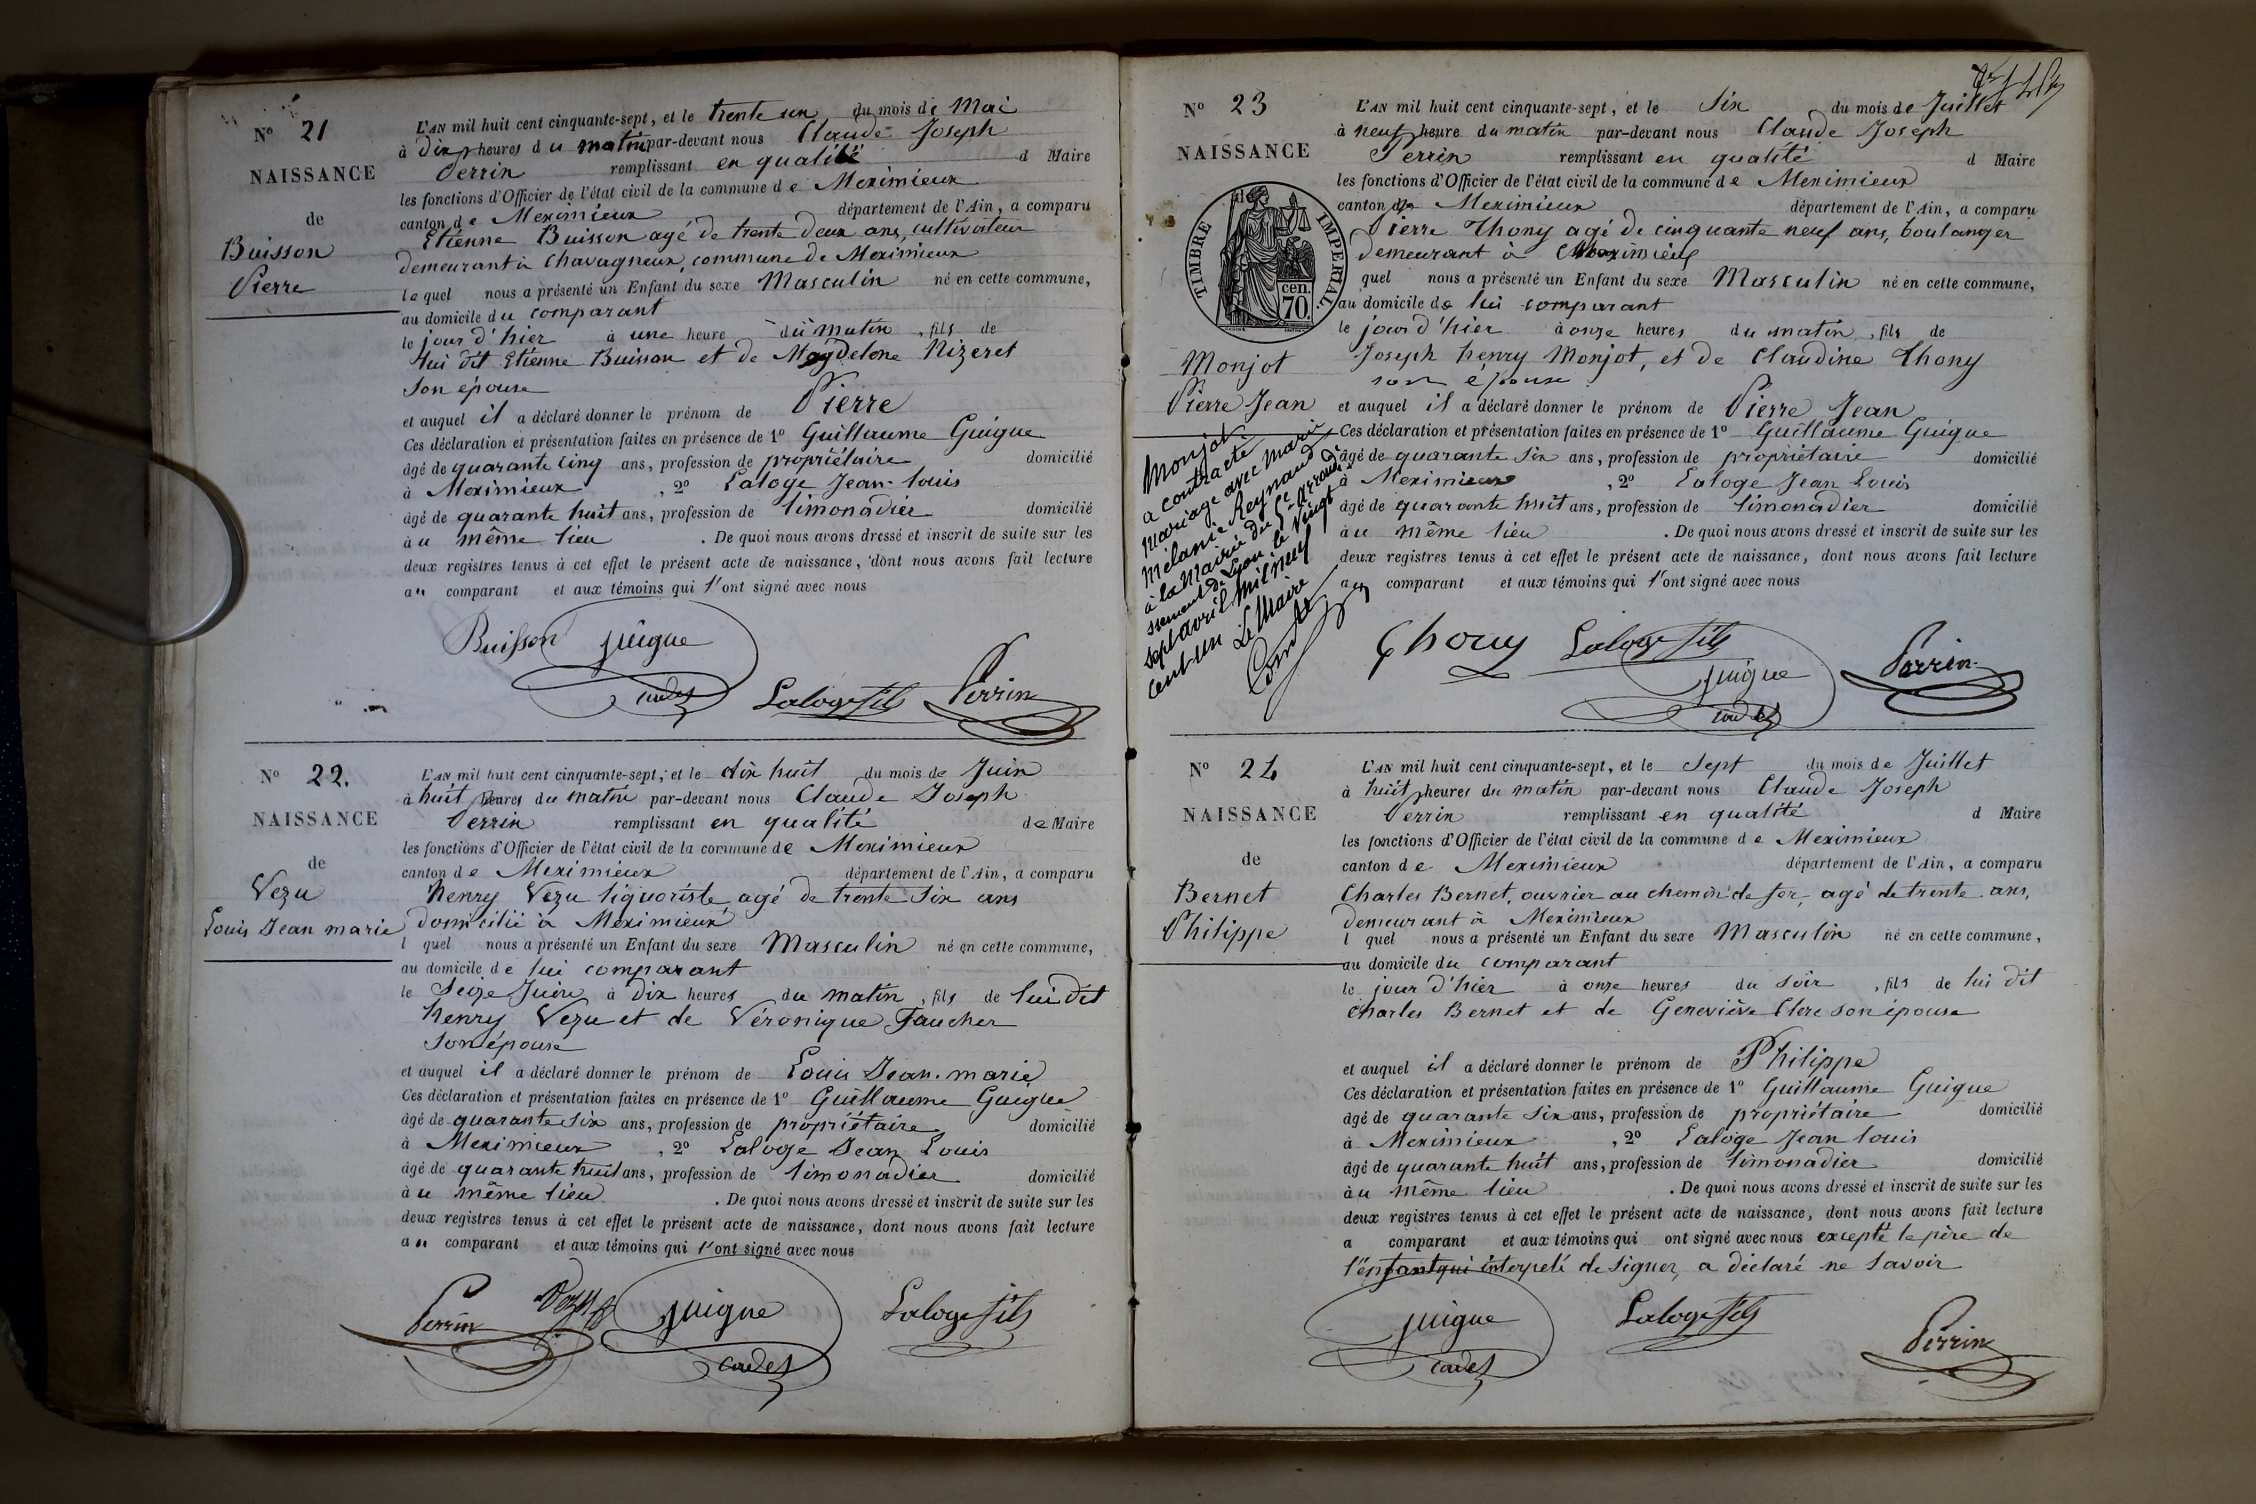 N° 21
NAISSANCE
de
Buisson
Pierre
L'AN mil huit cent cinquante-sept, et le trente un du mois de Mai
à dix heures du matin par-devant nous Claude Joseph
Perrin remplissant en qualité d Maire
les fonctions d'Officier de l'état civil de la commune de Meximieux
canton de Meximieux département de l'Ain, a comparu
Etienne Buisson agé de trente deux ans, cultivateur
demeurant à Chavagneux, commune de Meximieux
lequel nous a présenté un Enfant du sexe Masculin né en cette commune,
au domicile du comparant
le jour d'hier à une heure du matin, fils de
lui dit Etienne Buisson et de Magdelene Nizeret
son épouse
et auquel il a déclaré donner le prénom de Pierre
Ces déclaration et présentation faites en présence de 1° Guillaume Guigue
âgé de quarante cinq ans, profession de propriétaire domicilié
à Meximieux, 2° Laloge Jean-Louis
âgé de quarante huit ans, profession de limonadier domicilié
à u même lieu. De quoi nous avons dressé et inscrit de suite sur les
deux registres tenus à cet effet le présent acte de naissance, dont nous avons fait lecture
au comparant et aux témoins qui l'ont signé avec nous
Buisson Guigue
cadet Laloge fils Perrin
N° 22.
NAISSANCE
de
Vezu
Louis Jean marie
L'AN mil huit cent cinquante-sept, et le dix huit du mois de Juin
à huit heures du matin par-devant nous Claude Joseph
Perrin remplissant en qualité de Maire
les fonctions d'Officier de l'état civil de la commune de Meximieux
canton de Meximieux département de l'Ain, a comparu
henry Vezu liquoriste, agé de trente six ans
domicilié à Meximieux
l quel nous a présenté un Enfant du sexe Masculin né en cette commune,
au domicile de lui comparant
le Seize Juin à dix heures du matin, fils de lui dit
henry Vezu et de Véronique Faucher
son épouse
et auquel il a déclaré donner le prénom de Louis Jean-marie
Ces déclaration et présentation faites en présence de 1° Guillaume Guigue
âgé de quarante six ans, profession de propriétaire domicilié
à Meximieux, 2° Laloge Jean Louis
âgé de quarante huit ans, profession de limonadier domicilié
à u même lieu. De quoi nous avons dressé et inscrit de suite sur les
deux registres tenus à cet effet le présent acte de naissance, dont nous avons fait lecture
au comparant et aux témoins qui l'ont signé avec nous
Perrin Vezu Guigue Laloge fils
cadet
N° 23
NAISSANCE
TIMBRE IMPERIAL
cen.
70.
Monjot
Pierre Jean
Monjot
a contracté
mariage avec marie
mélanie Reynaud
à la Mairie du arrondi-
ssement de Lyon le vingt
sept avril mil neuf
cent un Le Maire
L'AN mil huit cent cinquante-sept, et le six du mois de Juillet
à neuf heure du matin par-devant nous Claude Joseph
Perrin remplissant en qualité d Maire
les fonctions d'Officier de l'état civil de la commune de Meximieux
canton de Meximieux département de l'Ain, a comparu
Pierre Thony agé de cinquante neuf ans, boulanger
demeurant à Meximieux
quel nous a présenté un Enfant du sexe Masculin né en cette commune,
au domicile de lui comparant
le jour d'hier à onze heures du matin, fils de
Joseph henry Monjot, et de Claudine Thony
son épouse
et auquel il a déclaré donner le prénom de Pierre Jean
Ces déclaration et présentation faites en présence de 1° Guillaume Guigue
âgé de quarante six ans, profession de propriétaire domicilié
à Meximieux, 2° Laloge Jean Louis
âgé de quarante huit ans, profession de limonadier domicilié
à u même lieu. De quoi nous avons dressé et inscrit de suite sur les
deux registres tenus à cet effet le présent acte de naissance, dont nous avons fait lecture
au comparant et aux témoins qui l'ont signé avec nous
Thony Laloge fils
Guigue Perrin
cadet
N° 24
NAISSANCE
de
Bernet
Philippe
L'AN mil huit cent cinquante-sept, et le Sept du mois de Juillet
à huit heures du matin par-devant nous Claude Joseph
Perrin remplissant en qualité d Maire
les fonctions d'Officier de l'état civil de la commune de Meximieux
canton de Meximieux département de l'Ain, a comparu
Charles Bernet, ouvrier au chemin de fer, agé de trente ans,
demeurant à Meximieux
l quel nous a présenté un Enfant du sexe Masculin né en cette commune,
au domicile du comparant
le jour d'hier à onze heures du soir, fils de lui dit
Charles Bernet et de Geneviève Clere son épouse
et auquel il a déclaré donner le prénom de Philippe
Ces déclaration et présentation faites en présence de 1° Guillaume Guigue
âgé de quarante six ans, profession de propriétaire domicilié
à Meximieux, 2° Laloge Jean Louis
âgé de quarante huit ans, profession de limonadier domicilié
à u même lieu. De quoi nous avons dressé et inscrit de suite sur les
deux registres tenus à cet effet le présent acte de naissance, dont nous avons fait lecture
a comparant et aux témoins qui ont signé avec nous excepté le père de
l'enfant qui interpelé de signer, a déclaré ne savoir
Guigue Laloge fils
cadet Perrin